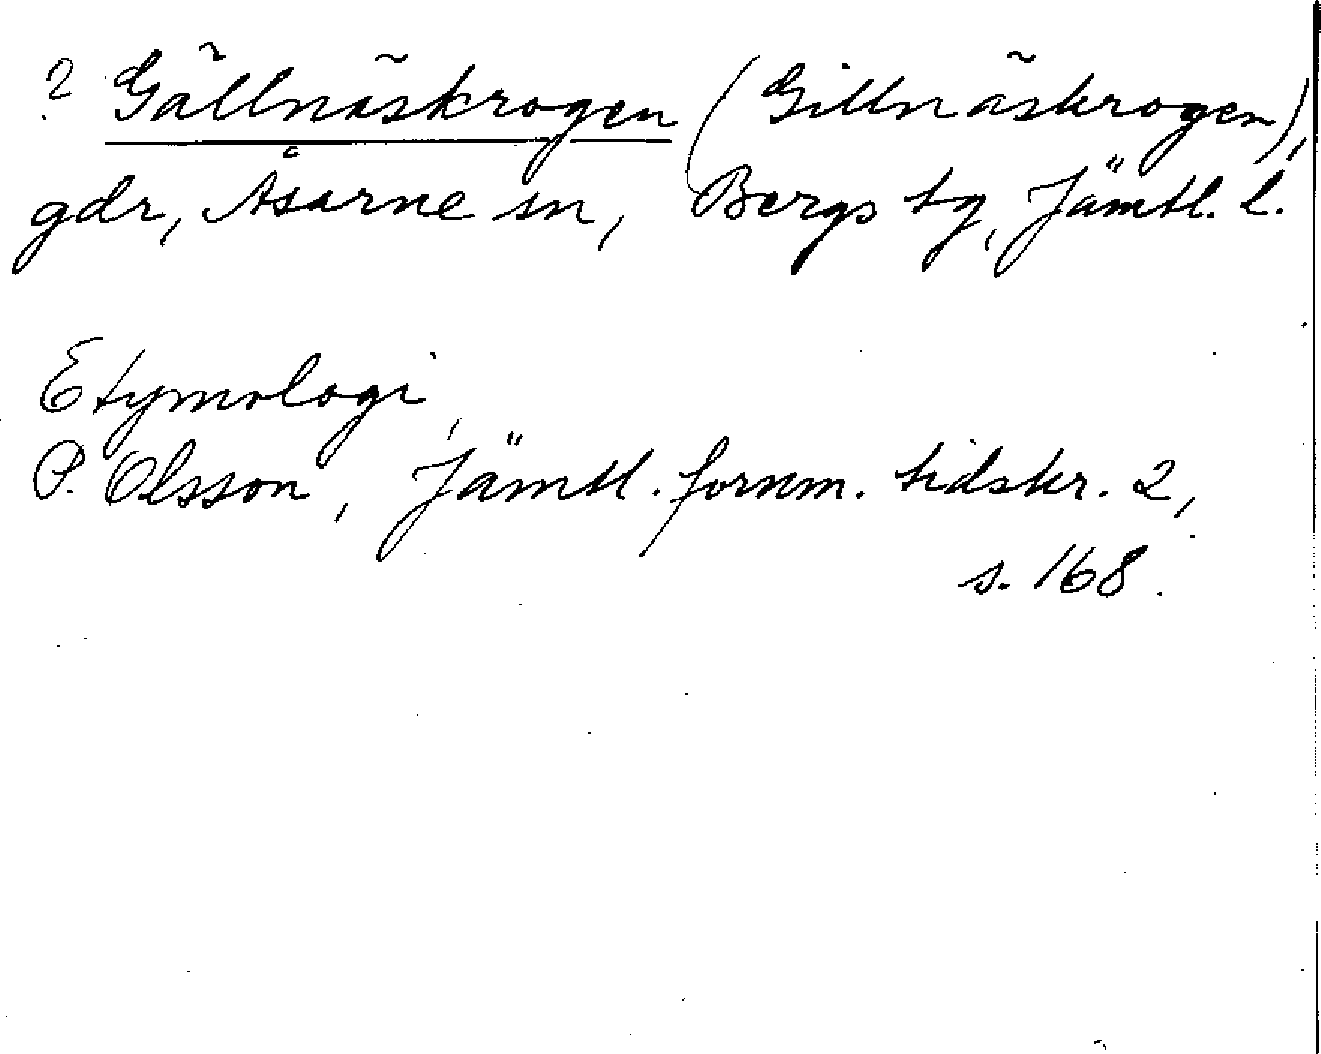 ? Gällnäskrogen (Gillnäskrogen),
gdr, Åsarne sn, Bergs tg, Jämtl. l.
Etymologi,
P. Olsson, Jämtl. fornm. tidskr. 2,
s. 168.